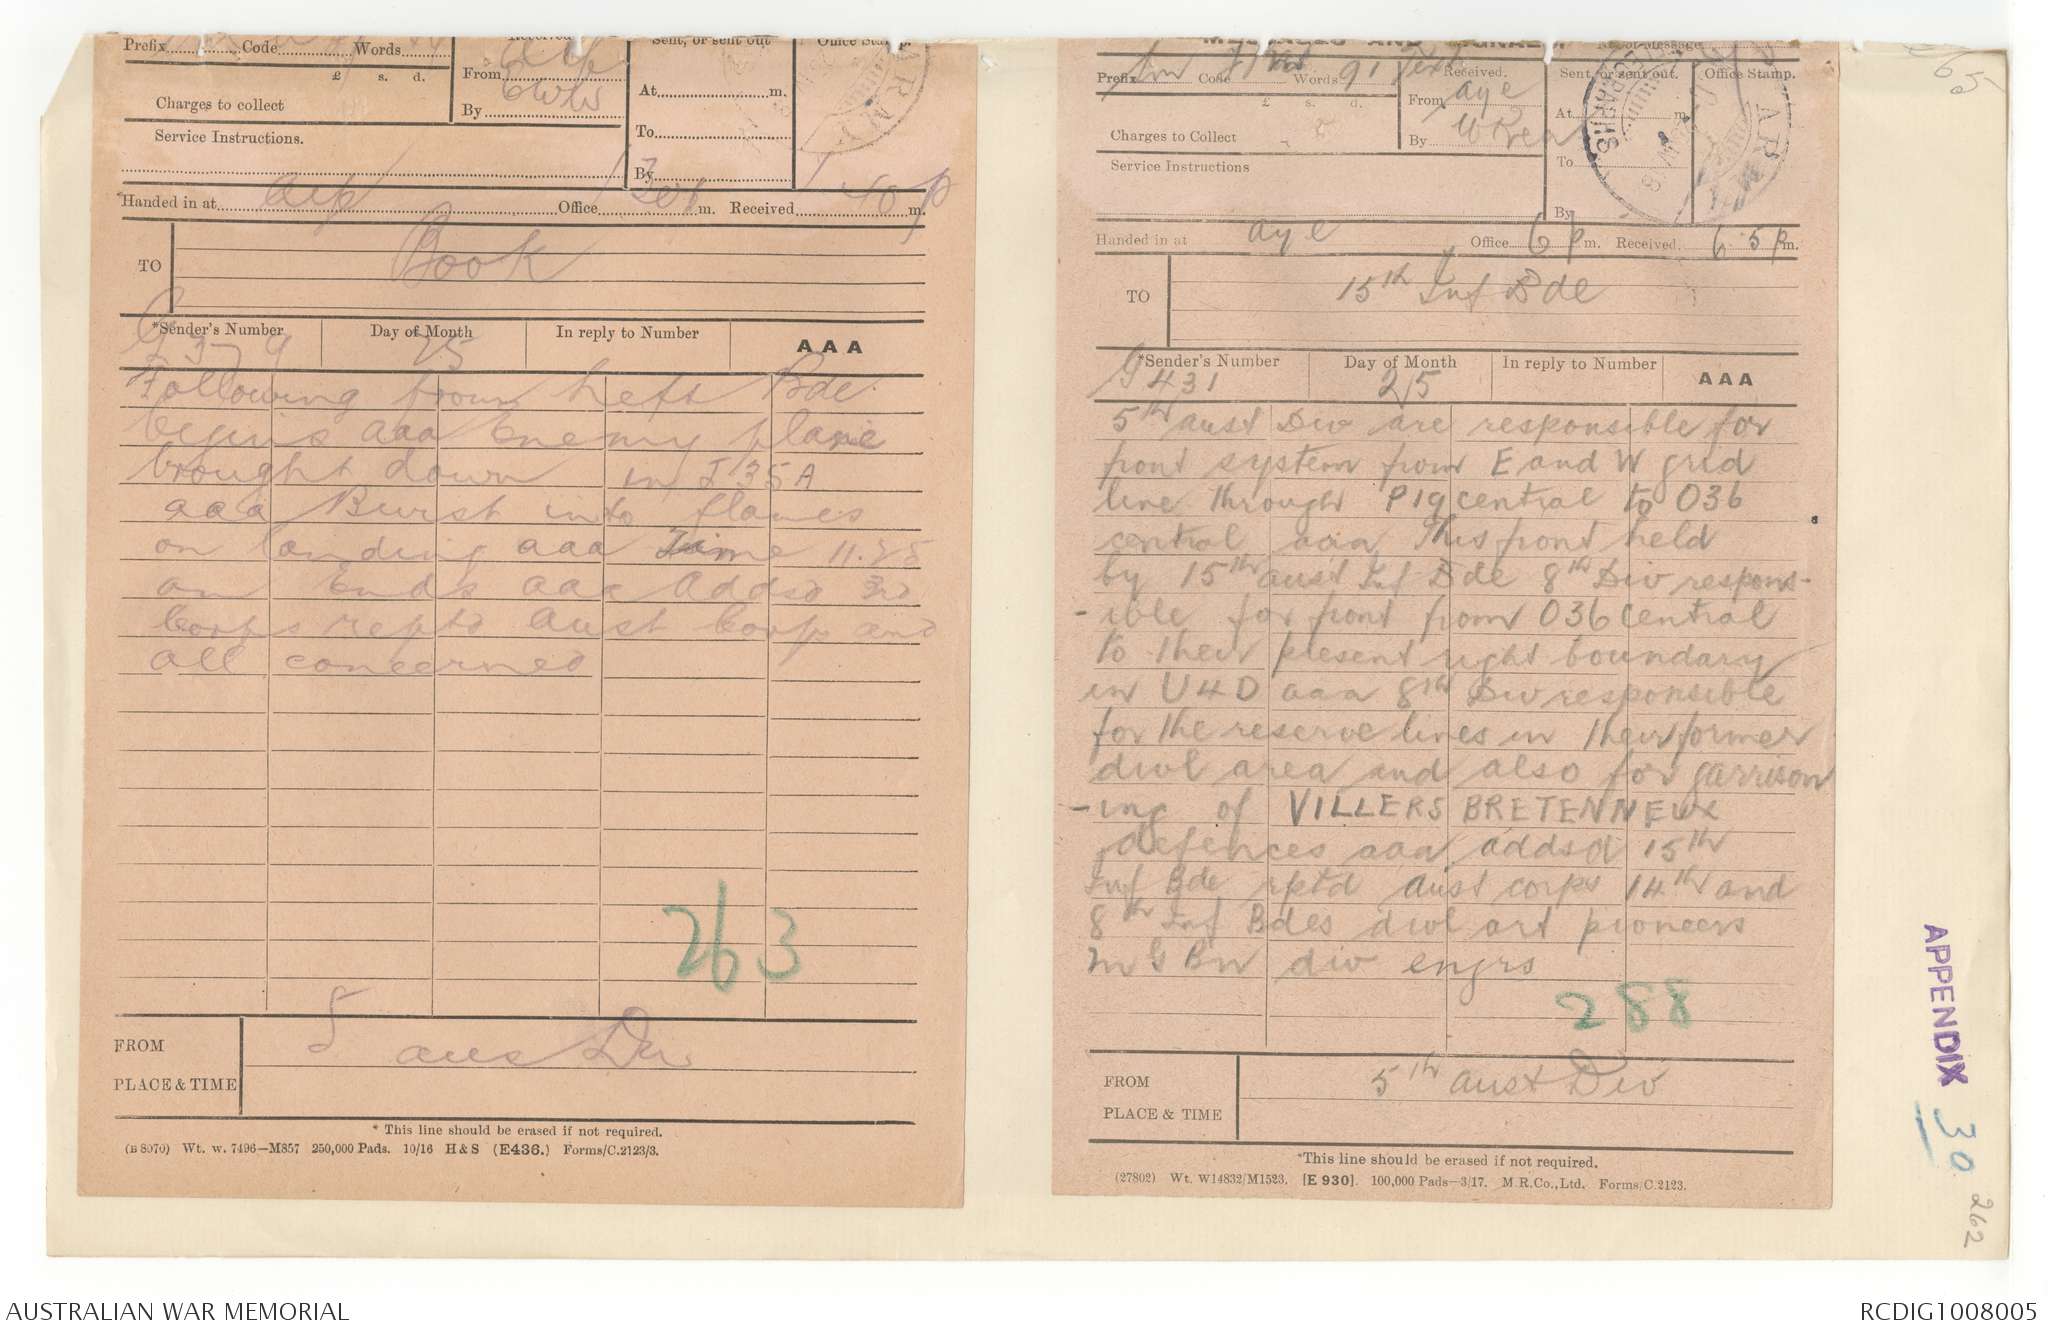 Prefix Code Words
£ s. d.
Charges to collect
Service Instructions.
Received
From
By
Sent, or sent out
At m.
To
By
Office Stamp.
*Handed in at Office m. Received m.
TO Book
*Sender's Number Day of Month In reply to Number AAA
G379 25
Following from Left Bde
begins aaa Enemy plane
brought down in J35A
aaa Burst into flames
on landing aaa Time 11.25
am Ends aaa Addsd 3rd
Corps reptd Aust Corps and
all concerned
263
FROM 5 aus Div
PLACE & TIME
* This line should be erased if not required.
(B 8070) Wt. w. 7496—M857 250,000 Pads. 10/16 H & S (E436.) Forms/C.2123/3.
MESSAGES AND SIGNALS.
No. of Message
Prefix Code Words 91
£ s. d.
Charges to Collect
Service Instructions
Received.
From aye
By
Sent, or sent out.
At m.
To
By
Office Stamp.
Handed in at aye Office 6 p m. Received. 6.5 p m.
TO 15th Inf Bde
*Sender's Number Day of Month In reply to Number AAA
G431 25
5th Aust Div are responsible for
front system from E and W grid
line through P19 central to O36
central aaa This front held
by 15th aust Inf Bde 8th Div respons-
-ible for front from O36 central
to their present right boundary
in U4D aaa 8th Div responsible
for the reserve lines in their former
divl area and also for garrison
-ing of VILLERS BRETENNEUX
defences aaa addsd 15th
Inf Bde rptd Aust corps 14th and
8th Inf Bdes divl art pioneers
M G Bn div engrs
288
FROM 5th Aust Div
PLACE & TIME
*This line should be erased if not required.
(27802) Wt. W14832/M1523. [E 930]. 100,000 Pads—3/17. M.R.Co., Ltd. Forms/C.2123.
65
APPENDIX 30
262
AUSTRALIAN WAR MEMORIAL
RCDIG1008005